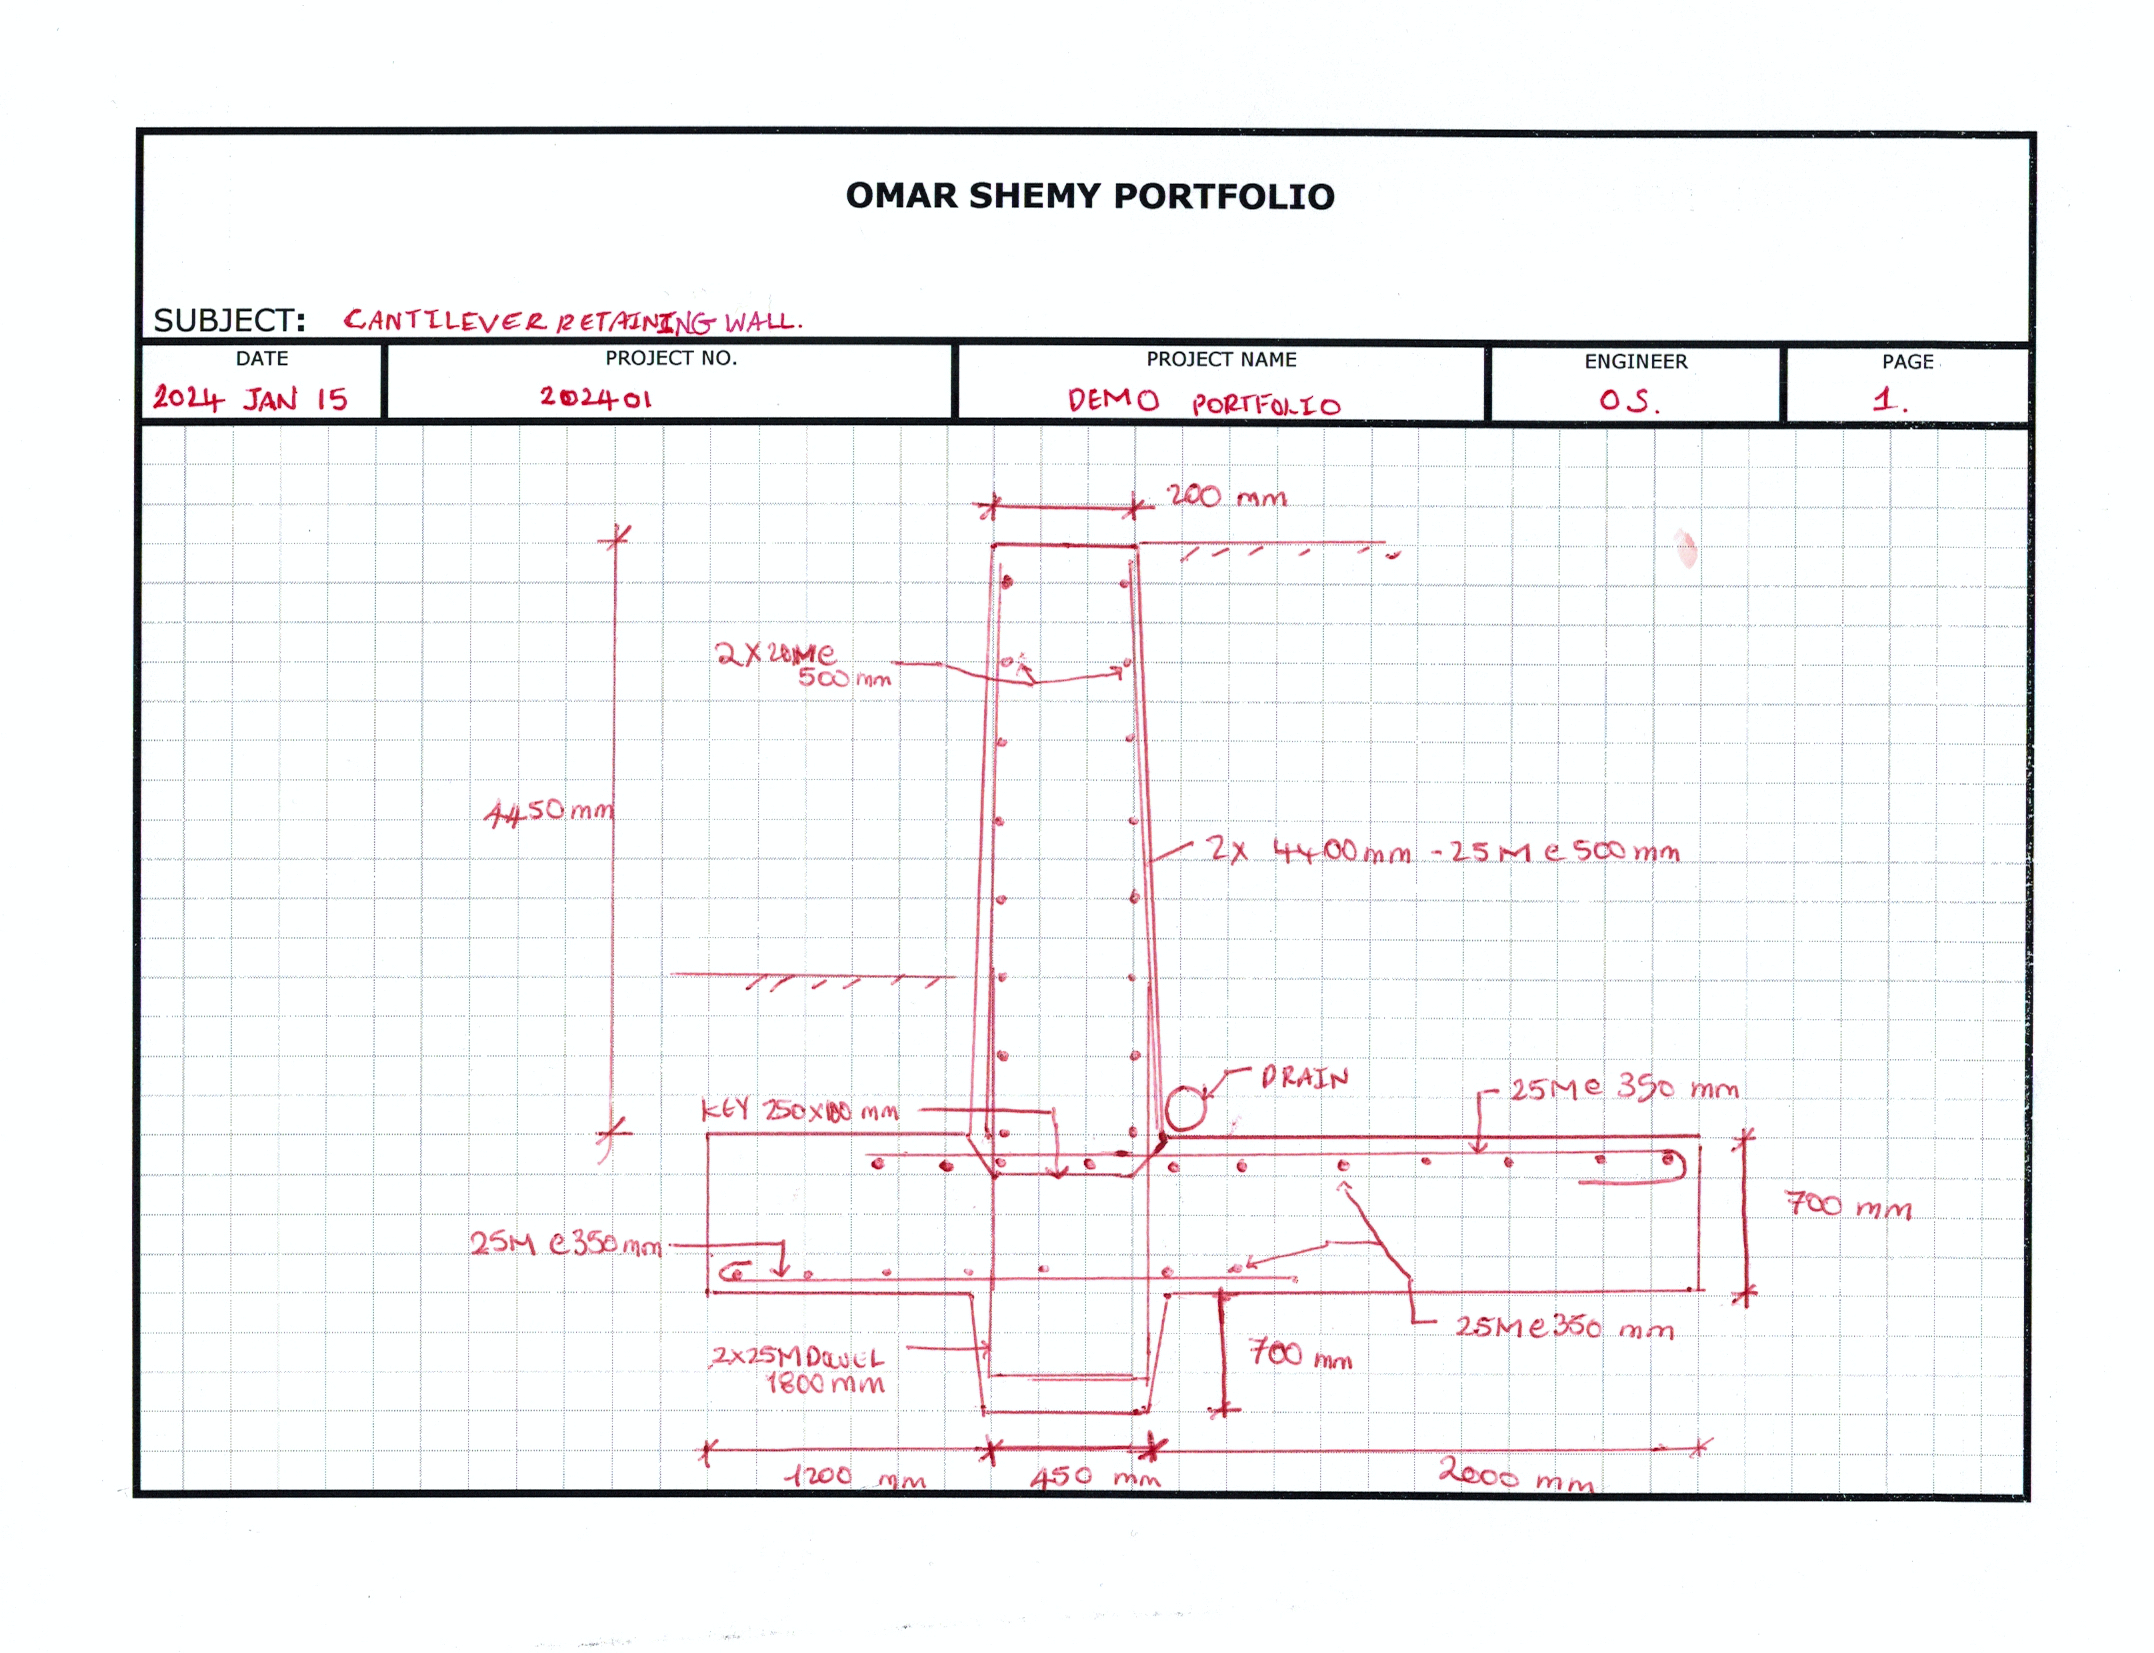 OMAR SHEMY PORTFOLIO
SUBJECT: CANTILEVER RETAINING WALL.
DATE
PROJECT NO.
PROJECT NAME
ENGINEER
PAGE
2024 JAN 15
202401
DEMO PORTFOLIO
O.S.
1.
200 mm
2X20M@
500mm
4450mm
2X 4400mm - 25M @ 500mm
DRAIN
KEY 250X100 mm
25M@ 350 mm
700 mm
25M @350mm
25M@350 mm
2X25M DOWEL
1800mm
700 mm
1200 mm
450 mm
2000 mm